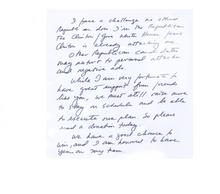 I face a challenge no other
Republican does. I'm the Republican
the Clinton / Gore White House fears
Clinton is already attacking
Other Republican candidates
may resort to personal attacks
and negative ads.
While I am very fortunate to
have great support from friends
like you, we must still raise more
to stay on schedule and be able
to execute our plan. So please
send a donation today.
We have a good chance to
win, and I am honored to have
you on my team